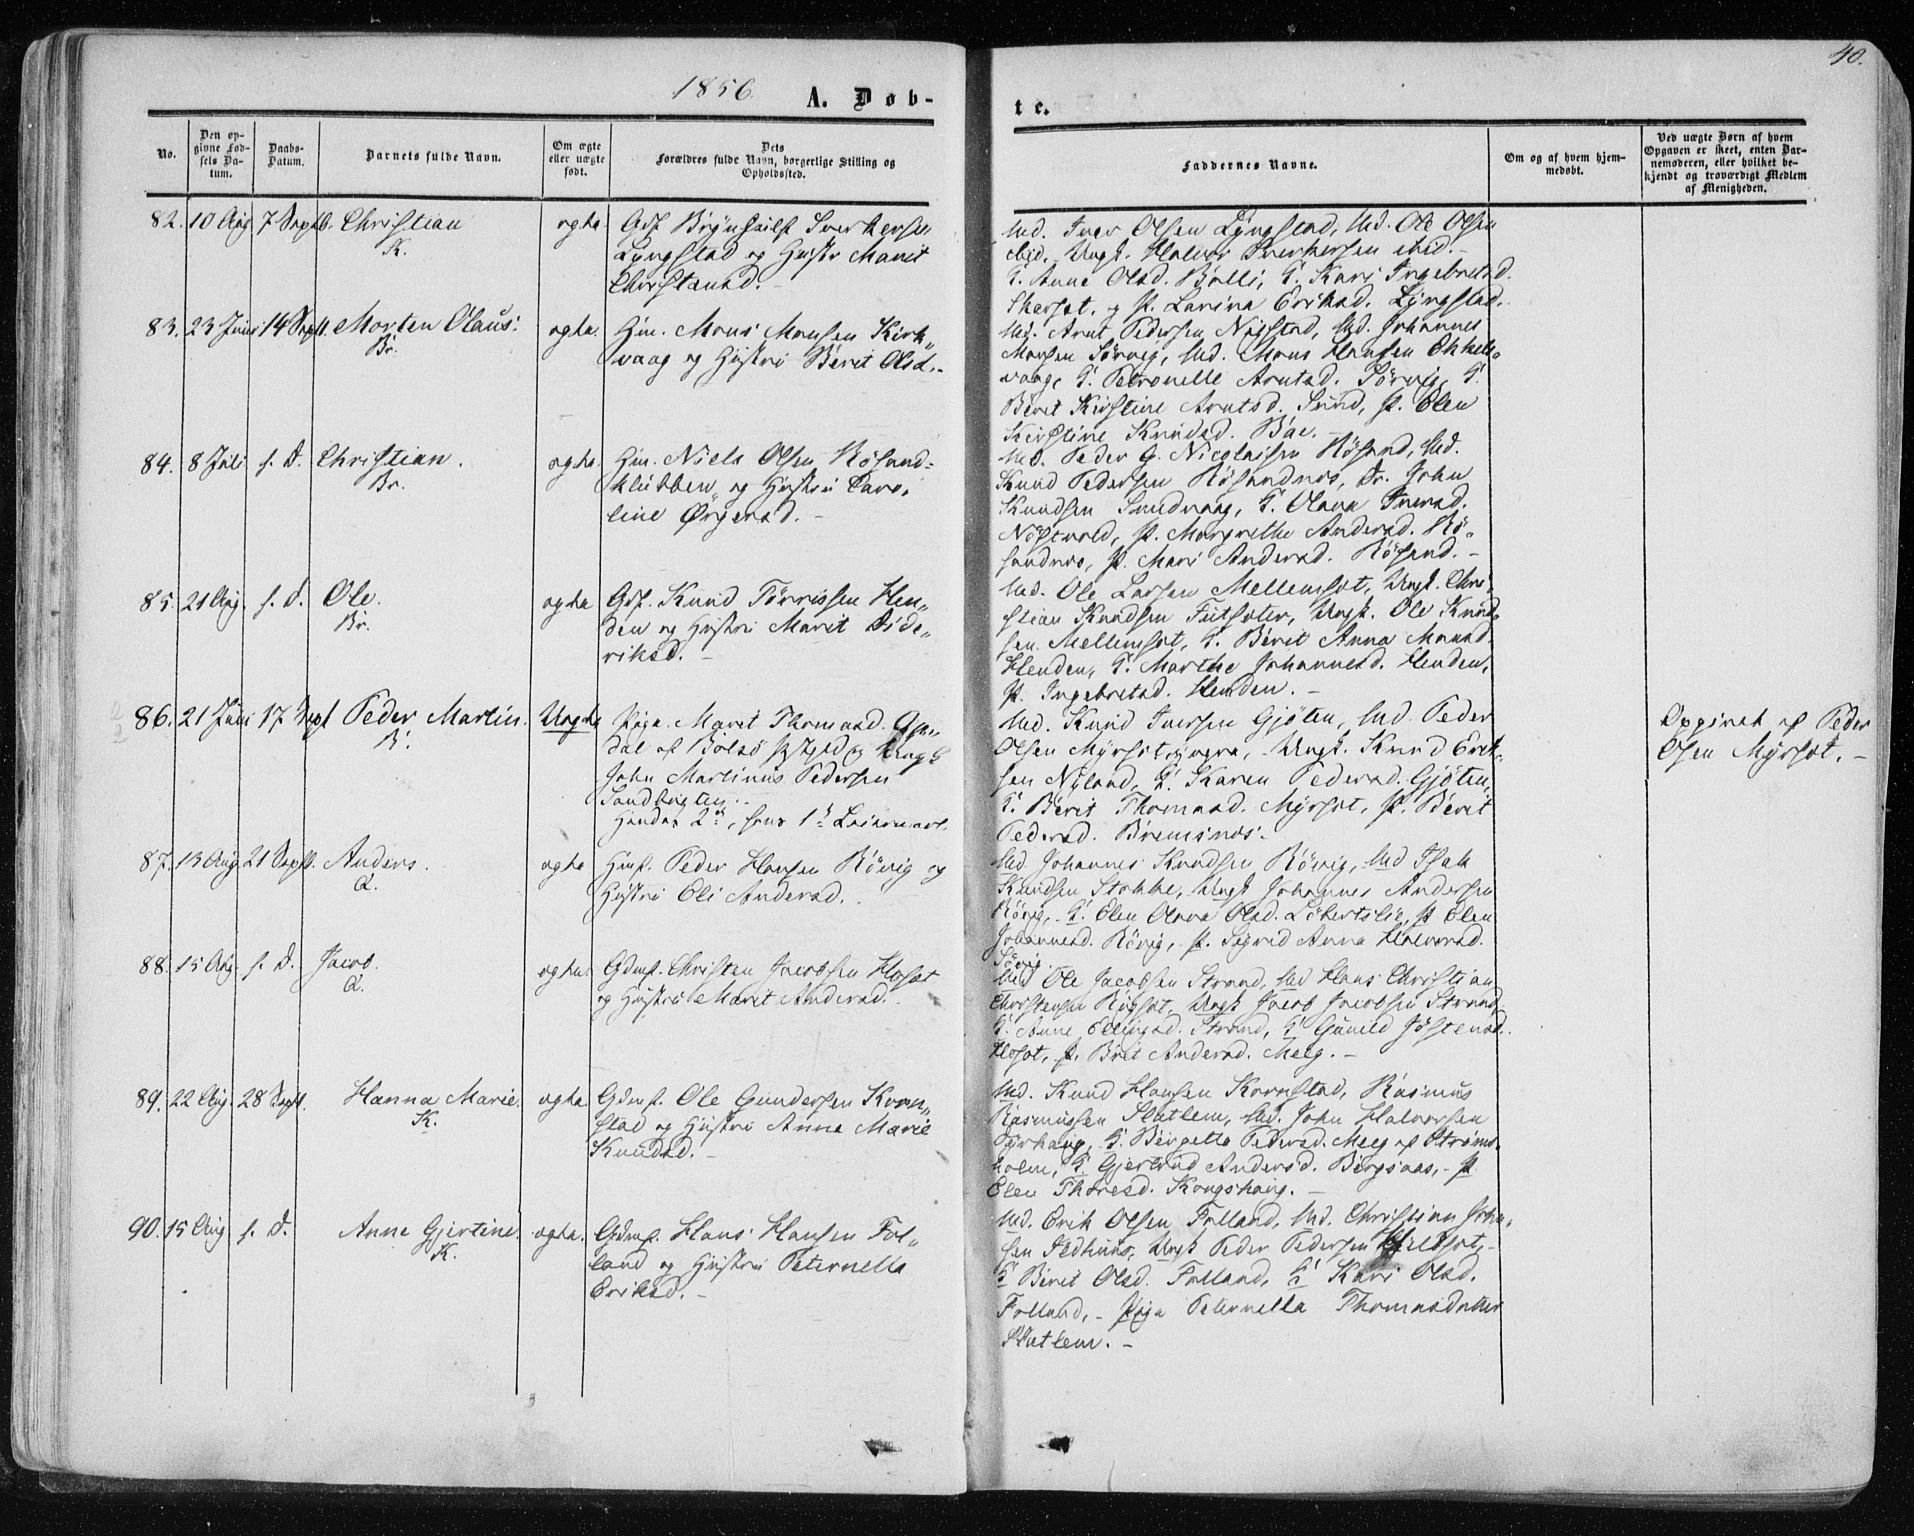 1856.
A. Døb-
te.
40.
No.
Den op-
givne Fød-
sels Da-
tum.
Daabs-
Datum.
Barnets fulde Navn.
Om ægte
eller uægte
født.
Dets
Forældres fulde Navn, borgerlige Stilling og
Opholdssted.
Faddernes Navne.
Om og af hvem hjem-
medøbt.
Ved uægte Børn af hvem
Opgaven er skeet, enten Bar-
nemoderen, eller hvilket be-
kjendt og troværdigt Medlem
af Menigheden.
82. 10 Aug 7 Septb. Christian ægte
K.
Lyngstad og Hustr Marit
Christensd.
Md. Iver Olsen Lyngstad, Md. Ole Olsen
ibid. Ungk. Halvor Sverkersen ibid.-
G. Anne Olsd. Bolli, G. Kari Ingebretsd.
P. Lavina Eriksd. Lyngstad.
83. 23 Juni 14 Septb. Morten Olaus. ægte.
Br.
Hm. Mons Monsen Kirk„
vaag og Hustru Berit Olsd.-
Md. Arnt Pedersen Nøistad, Md. Johannes
Monsen Sørvig, Md. Mons Hansen
vaag, G. Petronelle Arntsd. Sørvig, G.
Berit Kirstine Arntsd. Sund, P. Elen
Kirstine Knudsd. Bae.-
84. 8 Juli s. D. Christian. ægte
Br.
Hm. Niels Olsen Røsand-
klubben, og Hustru Caro„
line Ørgersd.-
Md. Peder G. Nicolaisen Røsand, Md.
Knud Pedersen Røsandnes, Dr. John
Knudsen Sundvaag, G. Olava Iversd.
P. Margrethe Andersd. Rø„
sandnes, P. Mari Andersd. Røsand.-
85. 21 Aug. s. D. Ole. ægte
Br.
Gdf. Knud Tørrissen Hen„
den og Hustru Marit Dide„
riksd.-
Md. Ole Larsen Mellemsæt, Ungk. Chri„
stian Knudsen Futsæter, Ungk. Ole Knud„
sen Mellemsæt, G. Berit Anna Monsd.
Henden, G. Marthe Johannesd. Henden,
P. Ingebretsd. Henden.-
86. 21 Juni 17 Sept Peder Martin. Uægte
B.
Pige Marit Thomasd.
dal af Bolsø Præstgjd og Ungk
John Martinus Pedersen
Sandbugten.-
Hendes 2det, hans 1ste Leiermaal.
Md. Knud Iversen Gjøten, Md. Peder
Olsen Myrsæt, Ungk. Knud Erik„
sen Nyland, G. Karen Pedersd. Gjøten,
G. Berit Thomasd. Myrsæt, P. Berit
Pedersd. Bremsnes.
Opgivet af Peder
Olsen Myrsæt.-
87. 13 Aug 21 Septb. Anders. ægte
Q.
Hmf. Peder Hansen Røvig og
Hustru Eli Andersd.
Md Johannes Knudsen Røvig, Md Isak
Knudsen Stokke, Ungk Johannes Andersen
Røvig,- G. Elen Olava Olsd. P Elen
Johannesd. Røvig,- P. Sigrid Anna Halvorsd.
Sørvig.
88. 15 Aug s. D. Jacob. ægte.
Q.
Gdmf. Christen Jacobsen Hosæt
og Hustru Marit Andersd.
Md Ole Jacobsen Strand, Md Hans Christian
Christensen Ungk Jacob Jacobsen Strand,
G. Anne Ellingsd. Strand, G Gunild Jøstensd.
Hosæt, P. Brit Andersd. Meeg.-
89. 22 Aug. 28 Septb. Hanna Marie. ægte
K.
Gdmf. Ole Gundersen Korn„
stad og Hustru Anna Marie
Knudsd.-
Md. Knud Hansen Kornstad, Rasmus
Rasmussen Statlem, Md. John Halvorsen
G. Pedersd. Meeg af Strøms-
holm, G Gjertrud Andersd. Bergsaas,- P
Elen Thoresd. Kongshaug.-
90. 15 Aug s. D. Anne Gjertine. ægte.
K.
Gdmf. Hans Hansen Fol„
land og Hustru Peternella
Eriksd.-
Md. Erik Olsen Folland, Md. Christian John„
sen Ungk Peder Pedersen
G Berit Olsd. Folland, G Kari Olsd.
Folland,- Pige Peternella Thomasdatter
Statlem.-